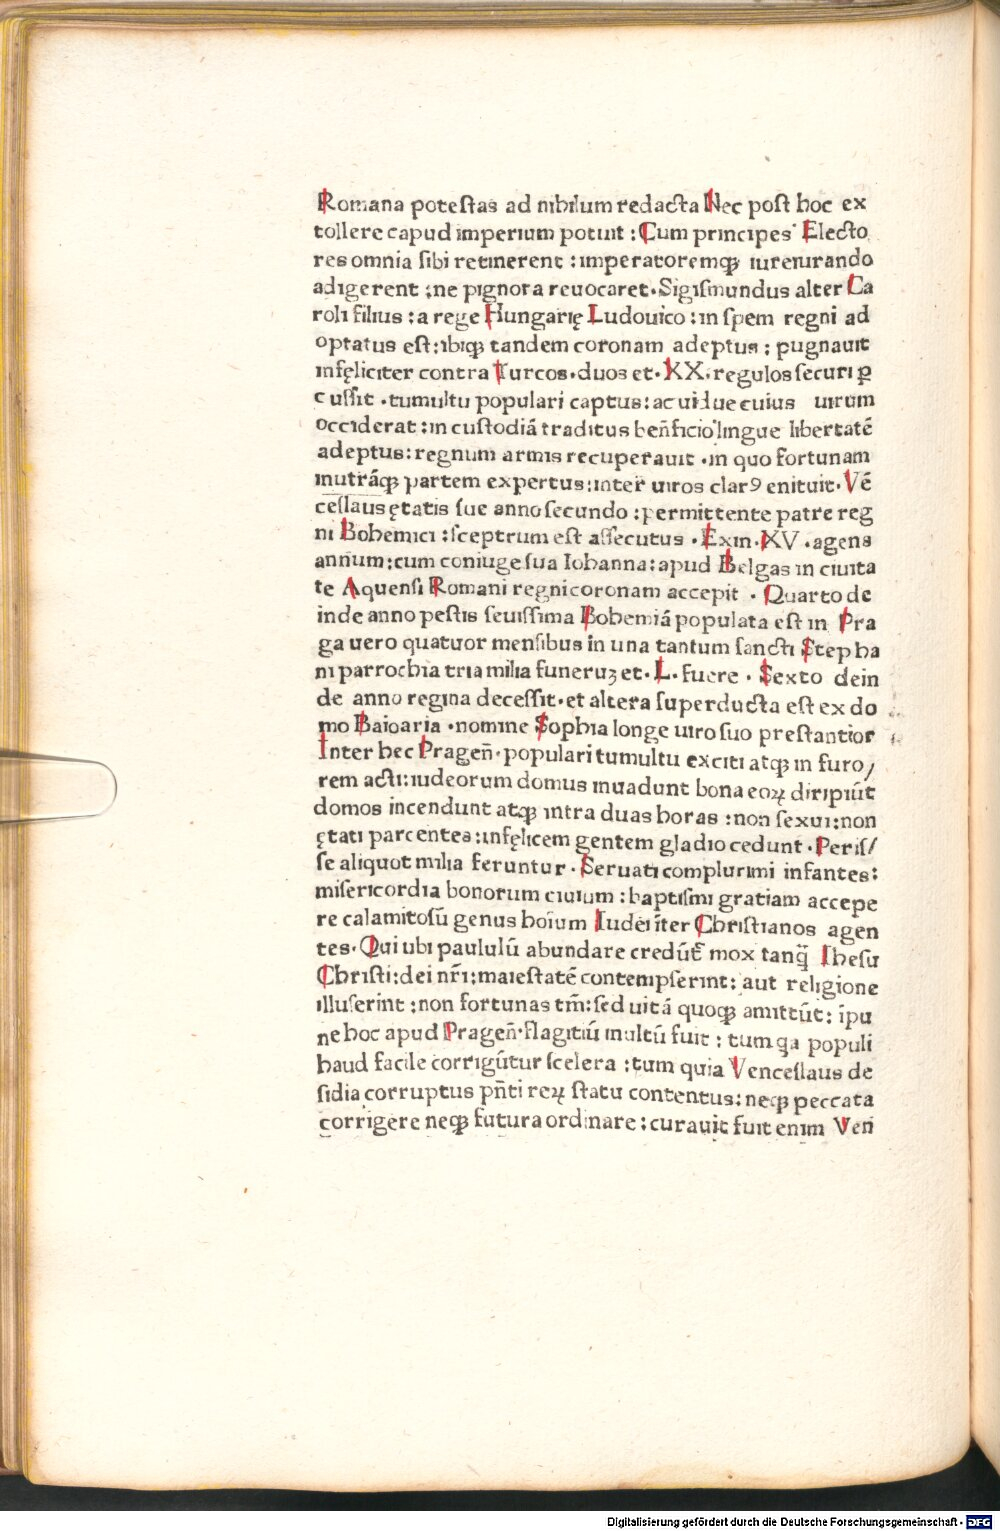 Romana poteſtas ad nihilum redacta Nec poſt hoc ex
tollere capud imperium potuit : Cum principes Electo
res omnia ſibi retinerent : imperatoremqꝫ iureiurando
adigerent : ne pignora reuocaret · Sigiſmundus alter Ca
roli filius : a rege Hungarię Ludouico : in ſpem regni ad
optatus eſt : ibiqꝫ tandem coronam adeptus : pugnauit
infęliciter contra Turcos · duos et · XX · regulos ſecuri ꝑ
cuſſit · tumultu populari captus : ac uidue cuius uirum
occiderat : in cuſtodiā traditus beñficio lingue libertatē
adeptus : regnum armis recuperauit · in quo fortunam
in utrāqꝫ partem expertus : inter uiros clarꝰ enituit · Vē
ceſlaus ętatis ſue anno ſecundo : permittente patre reg
ni Bohemici : ſceptrum eſt aſſecutus · Exin · XV · agens
annum : cum coniuge ſua Iohanna : apud Belgas in ciuita
te Aquenſi Romani regni coronam accepit · Quarto de
inde anno peſtis ſeuiſſima Bohemiā populata eſt in Pra
ga uero quatuor menſibus in una tantum ſancti Stepha
ni parrochia tria milia funeruꝫ et · L · fuere · Sexto dein
de anno regina deceſſit · et altera ſuperducta eſt ex do
mo Baioaria · nomine Sophia longe uiro ſuo preſtantior
Inter hec Pragen̄ · populari tumultu exciti atqꝫ in furo/
rem acti : iudeorum domus inuadunt bona eoꝝ diripiūt
domos incendunt atqꝫ intra duas horas : non ſexui : non
ętati parcentes : infęlicem gentem gladio cedunt · Periſ/
ſe aliquot milia feruntur · Seruati complurimi infantes :
miſericordia bonorum ciuium : baptiſmi gratiam accepe
re calamitoſū genus hoīum Iudei īter Chriſtianos agen
tes · Qui ubi paululū abundare credūt mox tanq̄ Iheſu
Chriſti : dei nr̄i : maieſtatē contempſerint : aut religione
illuſerint : non fortunas tm̄ : ſed uitā quoqꝫ amittūt : īpu
ne hoc apud Pragen̄ · flagitiū multū fuit : tum qa populi
haud facile corrigūtur ſcelera : tum quia Venceſlaus de
ſidia corruptus pn̄ti reꝝ ſtatu contentus : neqꝫ peccata
corrigere neqꝫ futura ordinare : curauit fuit enim Ven
Digitalisierung gefördert durch die Deutsche Forschungsgemeinschaft - DFG